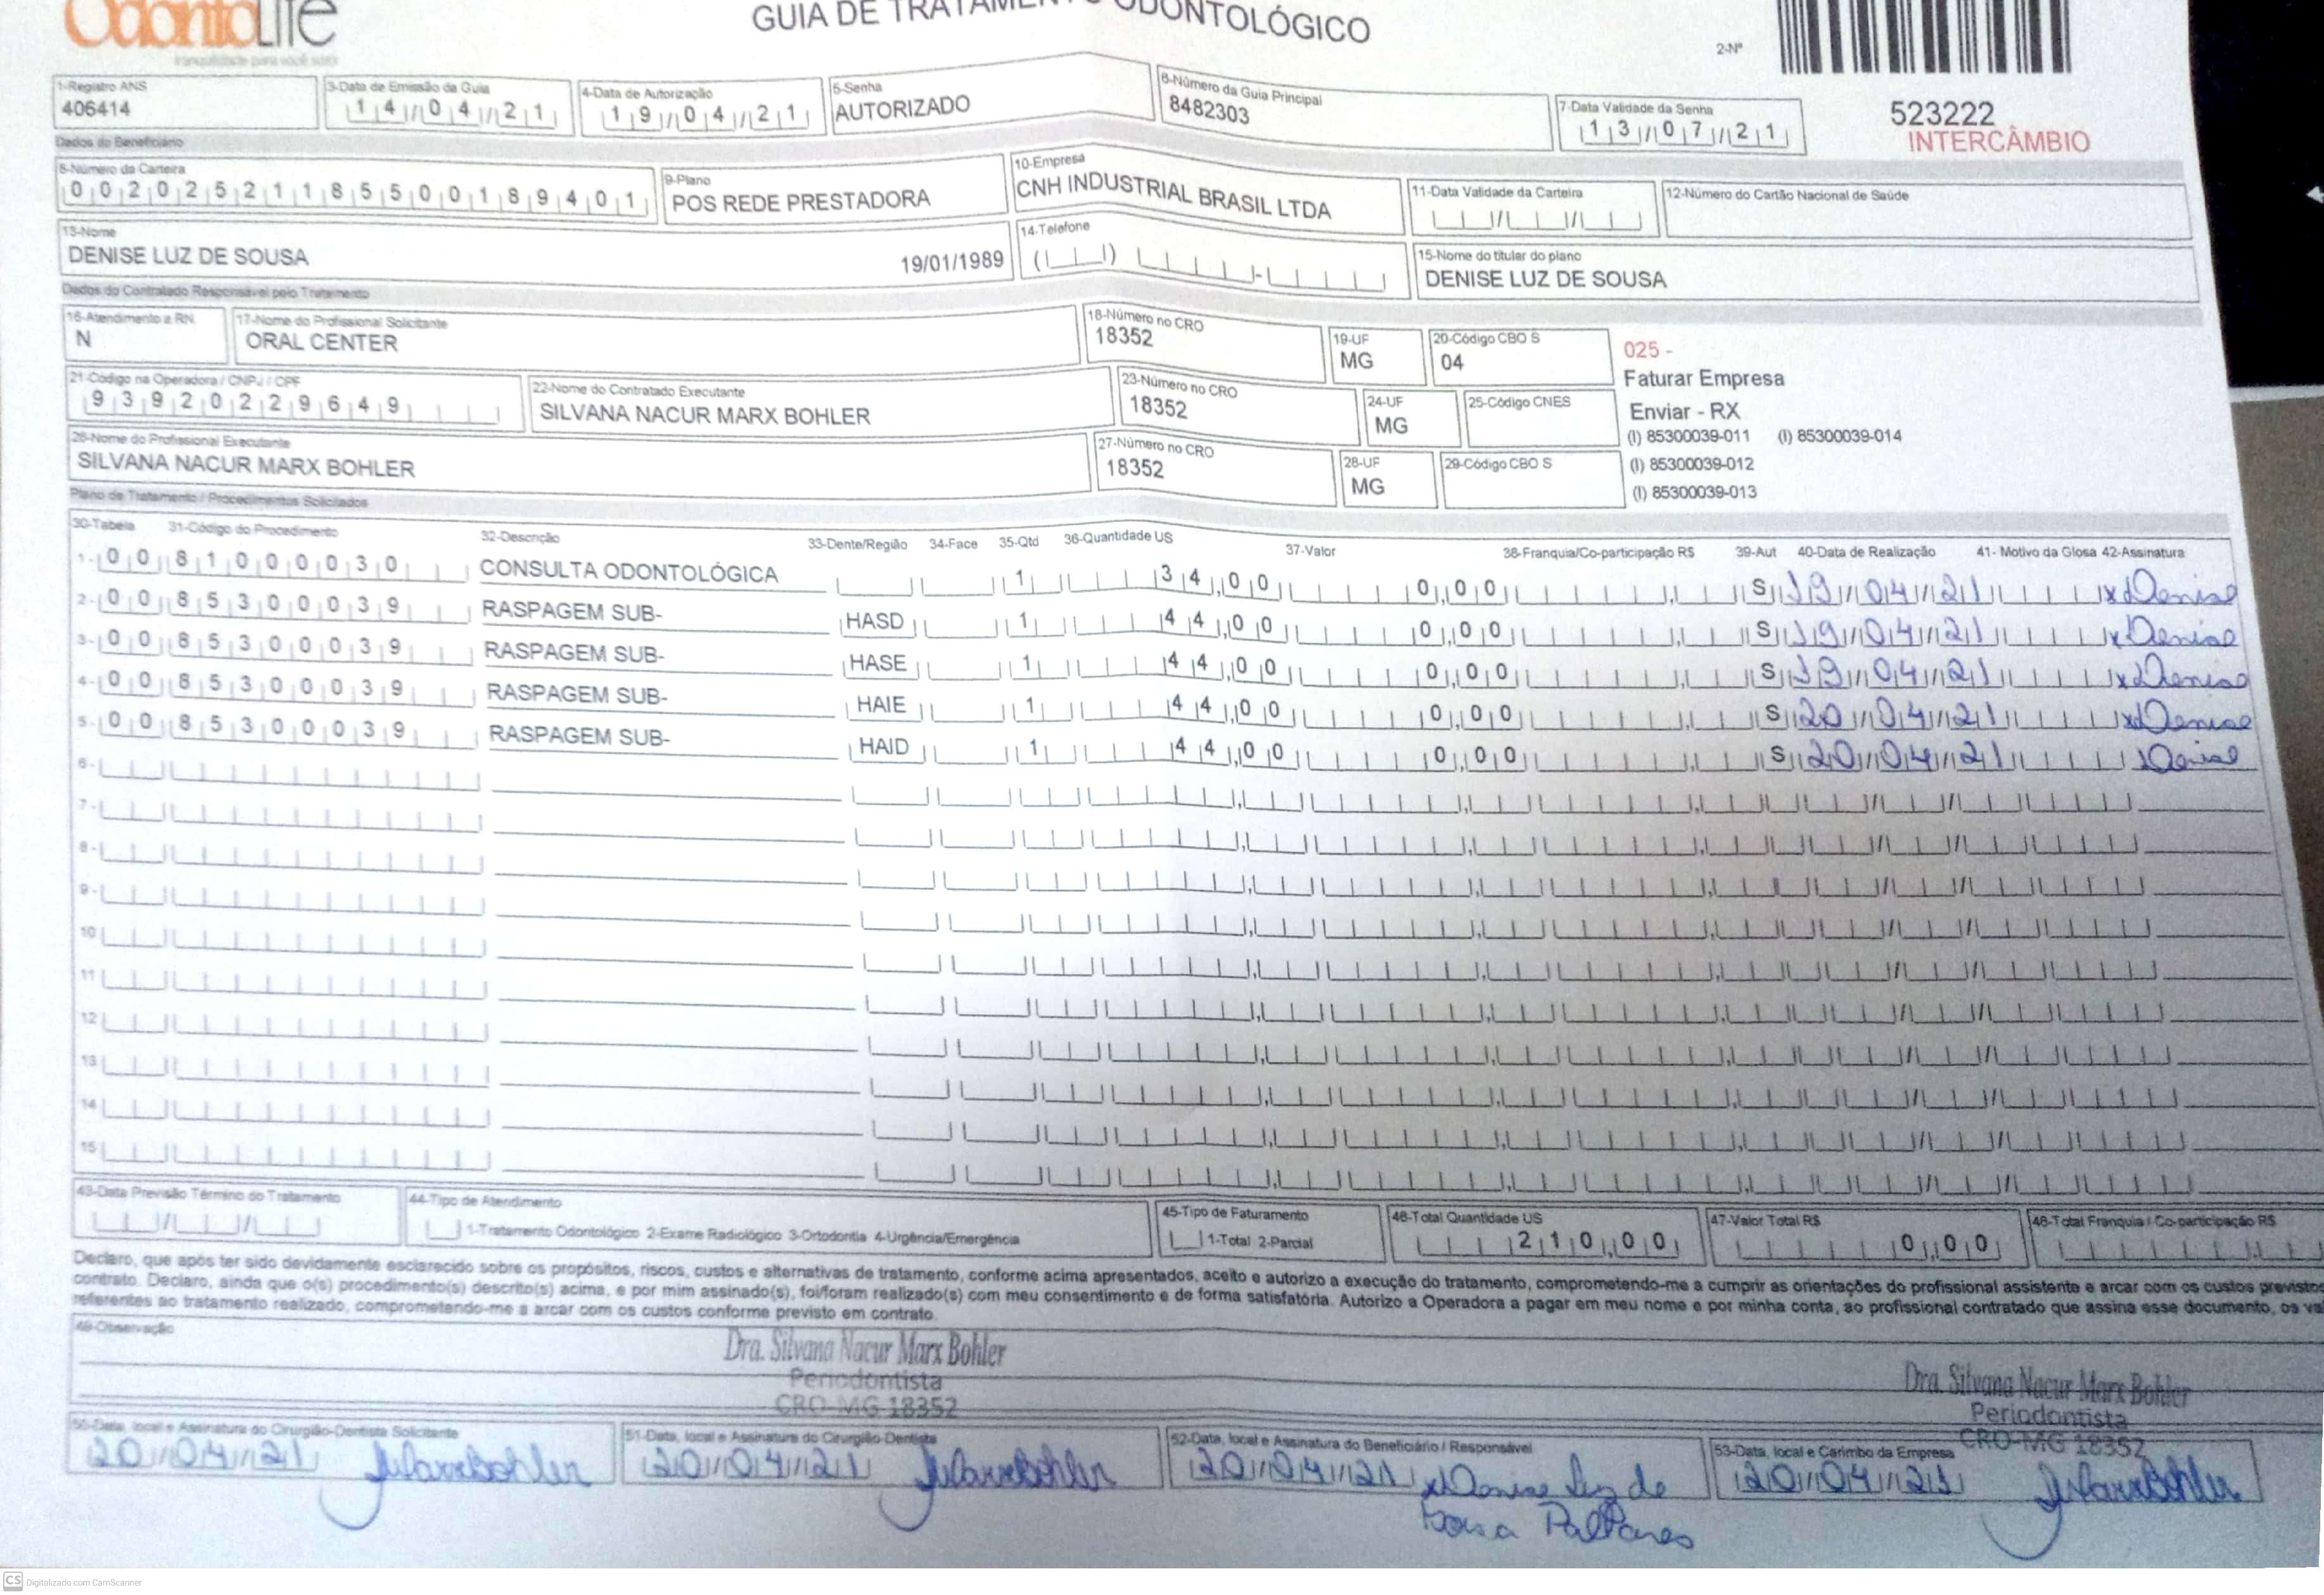 OdontoLife
tranquilidade para você sorrir
GUIA DE TRATAMENTO ODONTOLÓGICO
2-Nº
523222
INTERCÂMBIO
1-Registro ANS
406414
3-Data de Emissão da Guia
14/04/21
4-Data de Autorização
19/04/21
5-Senha
AUTORIZADO
6-Número da Guia Principal
8482303
7-Data Validade da Senha
13/07/21
Dados do Beneficiário
8-Número da Carteira
00202521185500189401
9-Plano
POS REDE PRESTADORA
10-Empresa
CNH INDUSTRIAL BRASIL LTDA
11-Data Validade da Carteira
12-Número do Cartão Nacional de Saúde
13-Nome
DENISE LUZ DE SOUSA 19/01/1989
14-Telefone
15-Nome do titular do plano
DENISE LUZ DE SOUSA
Dados do Contratado Responsável pelo Tratamento
16-Atendimento a RN
N
17-Nome do Profissional Solicitante
ORAL CENTER
18-Número no CRO
18352
19-UF
MG
20-Código CBO S
04
025 -
Faturar Empresa
Enviar - RX
(I) 85300039-011 (I) 85300039-014
(I) 85300039-012
(I) 85300039-013
21-Código na Operadora / CNPJ / CPF
93920229649
22-Nome do Contratado Executante
SILVANA NACUR MARX BOHLER
23-Número no CRO
18352
24-UF
MG
25-Código CNES
26-Nome do Profissional Executante
SILVANA NACUR MARX BOHLER
27-Número no CRO
18352
28-UF
MG
29-Código CBO S
Plano de Tratamento / Procedimentos Solicitados
30-Tabela 31-Código do Procedimento 32-Descrição 33-Dente/Região 34-Face 35-Qtd 36-Quantidade US 37-Valor 38-Franquia/Co-participação R$ 39-Aut 40-Data de Realização 41- Motivo da Glosa 42-Assinatura
1- 00 81000030 CONSULTA ODONTOLÓGICA 1 34,00 0,00 S 19/04/21 x Denise
2- 00 85300039 RASPAGEM SUB- HASD 1 44,00 0,00 S 19/04/21 x Denise
3- 00 85300039 RASPAGEM SUB- HASE 1 44,00 0,00 S 19/04/21 x Denise
4- 00 85300039 RASPAGEM SUB- HAIE 1 44,00 0,00 S 20/04/21 x Denise
5- 00 85300039 RASPAGEM SUB- HAID 1 44,00 0,00 S 20/04/21 x Denise
6-
7-
8-
9-
10
11
12
13
14
15
43-Data Previsão Término do Tratamento
44-Tipo de Atendimento
1-Tratamento Odontológico 2-Exame Radiológico 3-Ortodontia 4-Urgência/Emergência
45-Tipo de Faturamento
1-Total 2-Parcial
46-Total Quantidade US
210,00
47-Valor Total R$
0,00
48-Total Franquia / Co-participação R$
Declaro, que após ter sido devidamente esclarecido sobre os propósitos, riscos, custos e alternativas de tratamento, conforme acima apresentados, aceito e autorizo a execução do tratamento, comprometendo-me a cumprir as orientações do profissional assistente e arcar com os custos previsto
contrato. Declaro, ainda que o(s) procedimento(s) descrito(s) acima, e por mim assinado(s), foi/foram realizado(s) com meu consentimento e de forma satisfatória. Autorizo a Operadora a pagar em meu nome e por minha conta, ao profissional contratado que assina esse documento, os va
referentes ao tratamento realizado, comprometendo-me a arcar com os custos conforme previsto em contrato.
49-Observação
Dra. Silvana Nacur Marx Bohler
Periodontista
CRO-MG 18352
Dra. Silvana Nacur Marx Bohler
Periodontista
CRO-MG 18352
50-Data, local e Assinatura do Cirurgião-Dentista Solicitante
20/04/21
51-Data, local e Assinatura do Cirurgião-Dentista
20/04/21
52-Data, local e Assinatura do Beneficiário / Responsável
20/04/21 x Denise Luz de
Sousa
53-Data, local e Carimbo da Empresa
20/04/21
CS Digitalizado com CamScanner